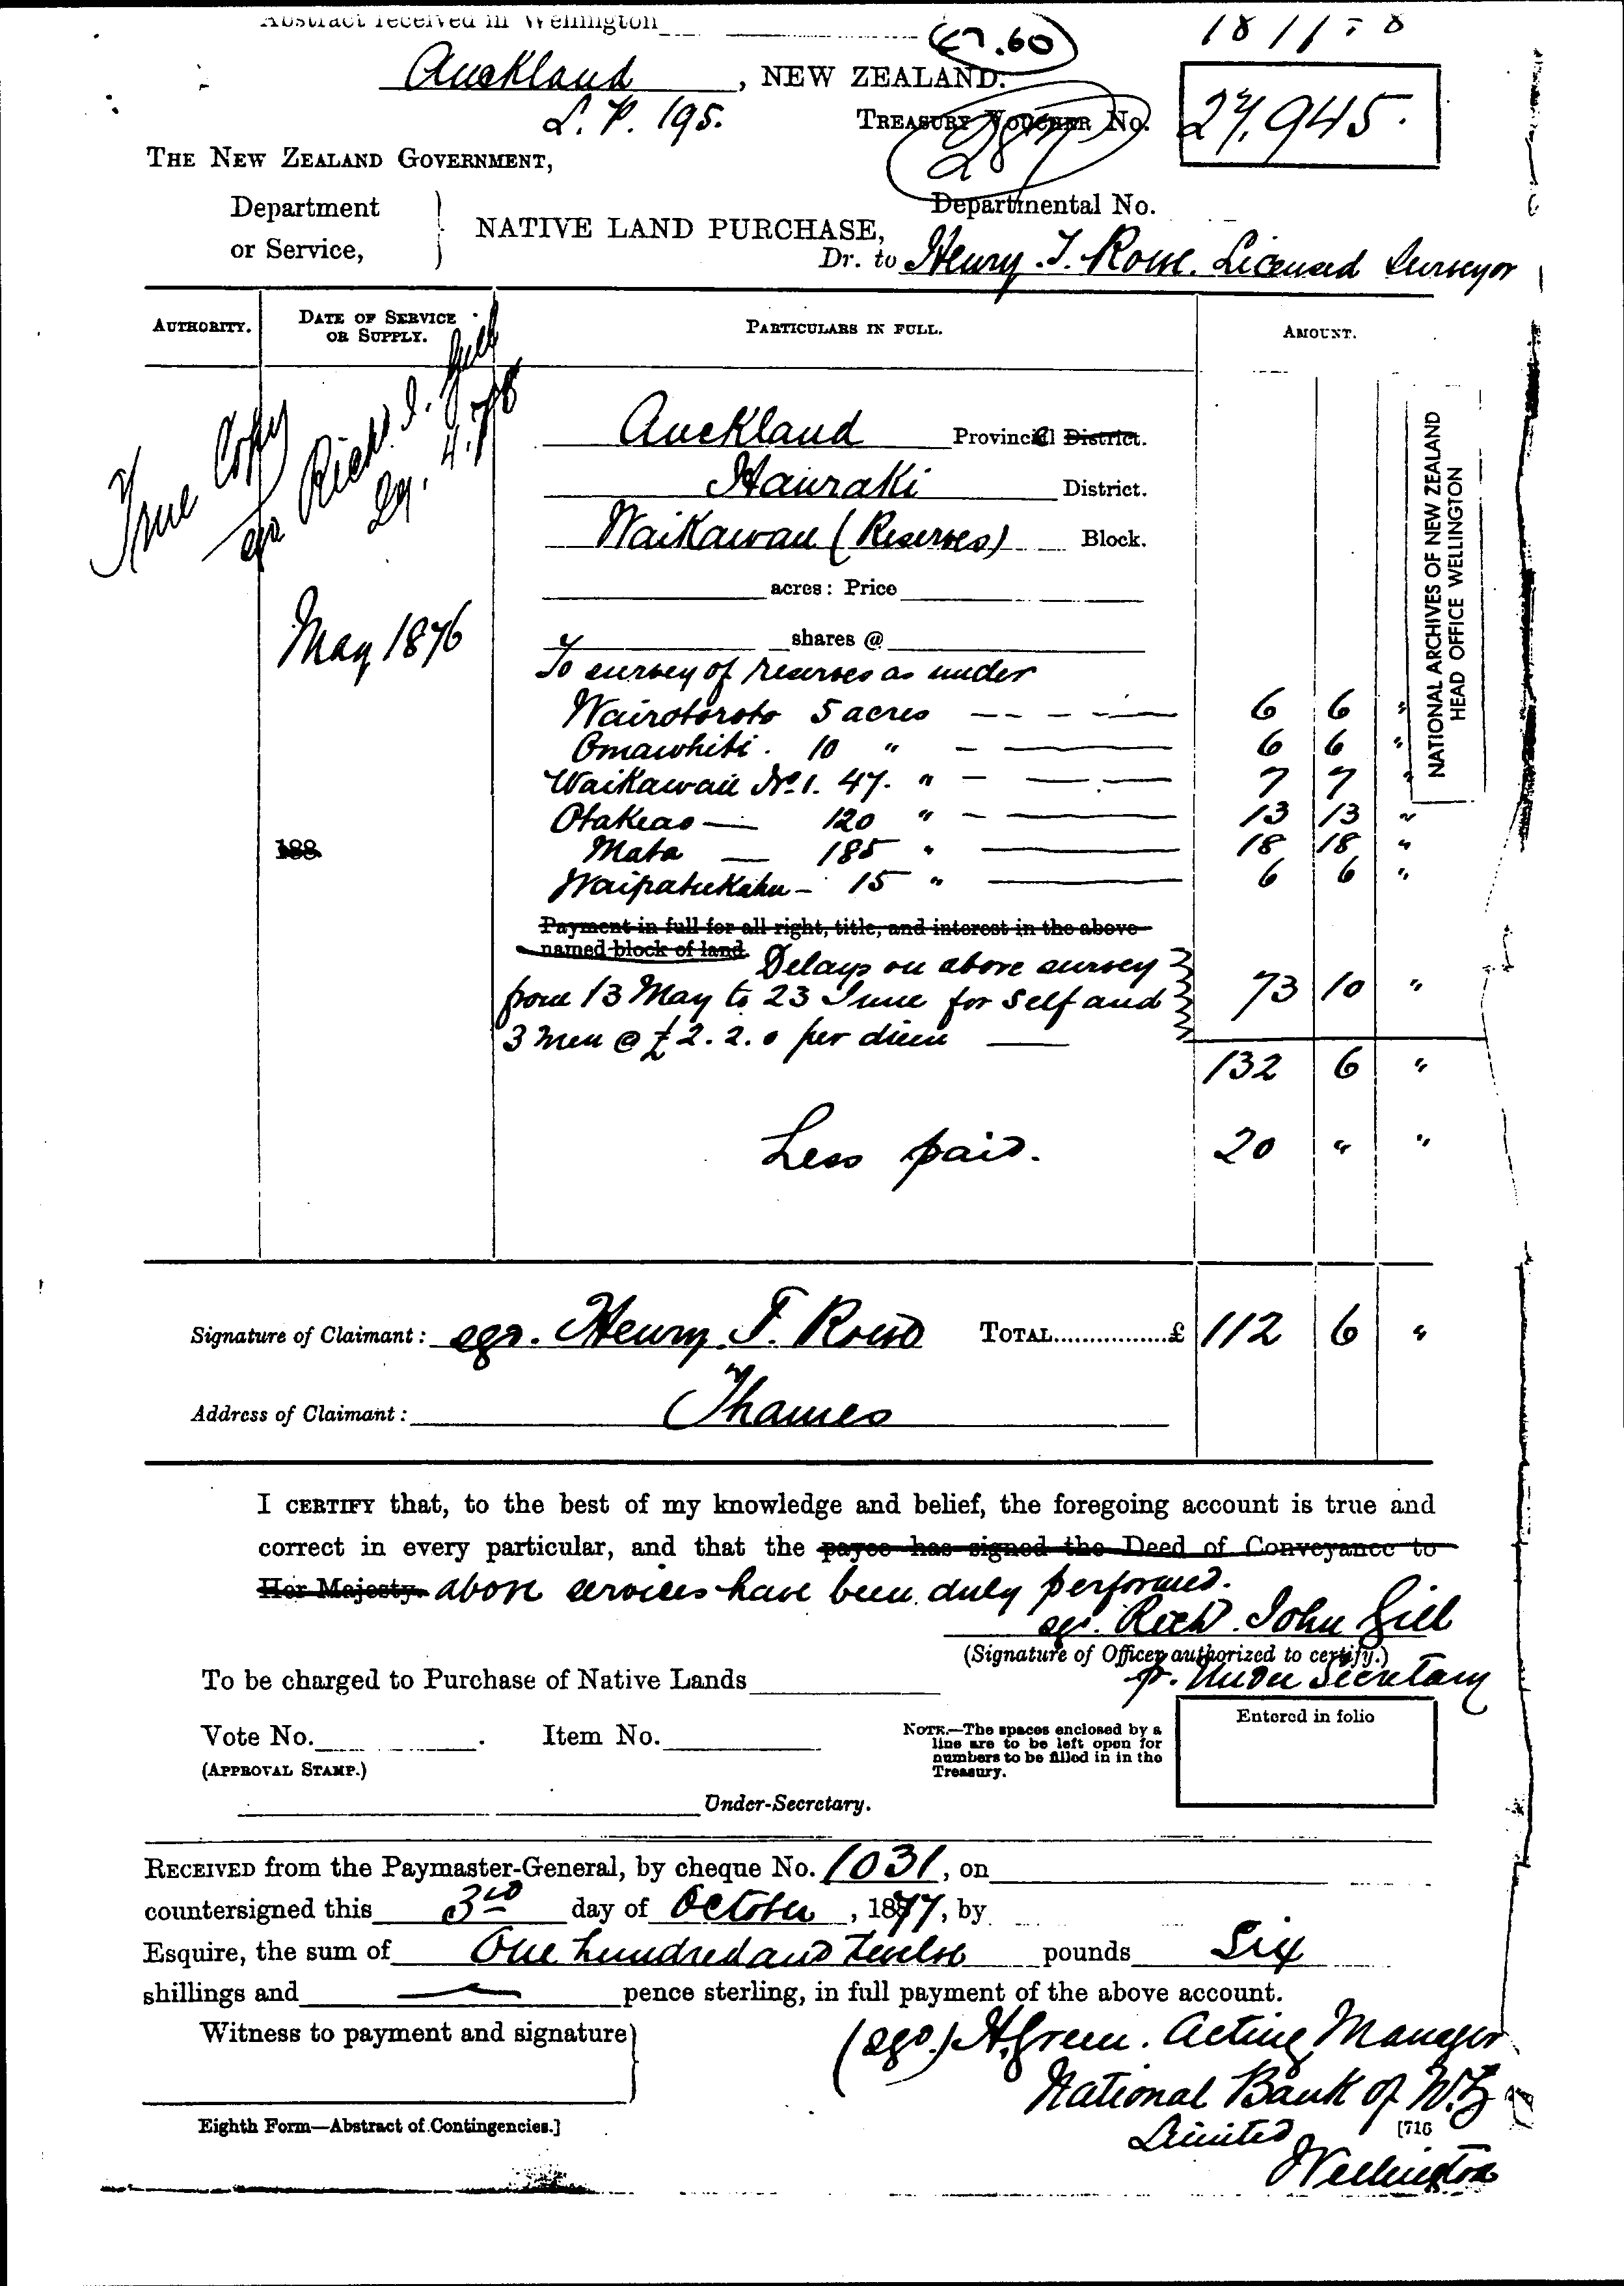 Abstract received in Wellington
£7.60
Auckland, NEW ZEALAND.
L.P. 195.
TREASURY VOUCHER No. 27,945.
287
THE NEW ZEALAND GOVERNMENT,
Department
or Service,
NATIVE LAND PURCHASE,
Departmental No.
Dr. to Henry F. Rowe. Licensed Surveyor
AUTHORITY.
DATE OF SERVICE OR SUPPLY.
PARTICULARS IN FULL.
AMOUNT.
True Copy
sgd. Richd. J. Gill
4.78
Auckland Province District.
Hauraki District.
Waikawau (Reserves) Block.
acres: Price
May 1876
shares @
To survey of reserves as under
Wairotoroto 5 acres 6 6 "
Omawhiti. 10 " 6 6 "
Waikawau No. 1. 47. " 7 7 "
Otakeao 120 " 13 13 "
188
Mata 185 " 18 18 "
Waipatukahu 15 " 6 6 "
Payment in full for all right, title, and interest in the above-
named block of land.
Delays on above survey
from 13 May to 23 June for self and 73 10 "
3 men @ £2.2.0 per diem
132 6 "
Less paid. 20 " "
Signature of Claimant: sgd. Henry F. Rowe TOTAL................£ 112 6 "
Address of Claimant: Thames
NATIONAL ARCHIVES OF NEW ZEALAND
HEAD OFFICE WELLINGTON
I CERTIFY that, to the best of my knowledge and belief, the foregoing account is true and
correct in every particular, and that the payee has signed the Deed of Conveyance to
Her Majesty. above services have been duly performed.
sgd. Richd. John Gill
(Signature of Officer authorized to certify.)
p. Under Secretary
To be charged to Purchase of Native Lands
Vote No. Item No.
(APPROVAL STAMP.)
NOTE.—The spaces enclosed by a
line are to be left open for
numbers to be filled in in the
Treasury.
Entered in folio
Under-Secretary.
RECEIVED from the Paymaster-General, by cheque No. 1031, on
countersigned this 3rd day of October, 1877, by
Esquire, the sum of One hundred and twelve pounds Six
shillings and pence sterling, in full payment of the above account.
Witness to payment and signature
(sgd.) H. Green. Acting Manager
National Bank of N.Z
Limited
Wellington
Eighth Form—Abstract of Contingencies.]
[716